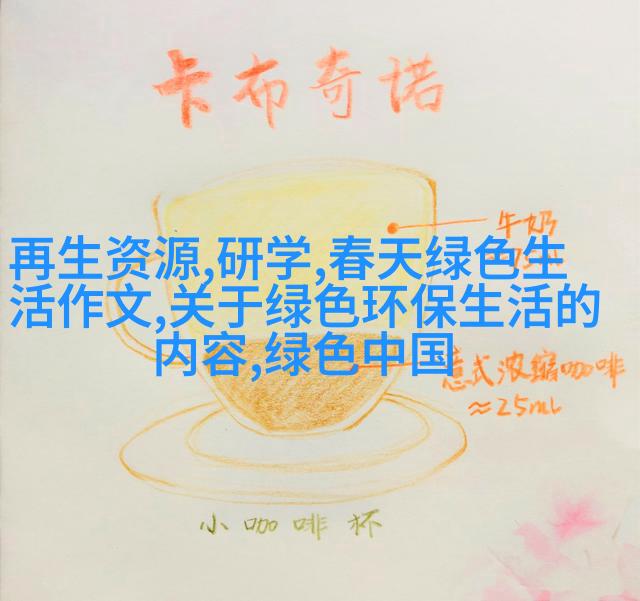 卡布奇诺
牛奶
75ml
再生资源,研学,春天绿色生
活作文,关于绿色环保生活的
内容,绿色中国
意式浓缩咖啡
≈25ml
小咖啡杯